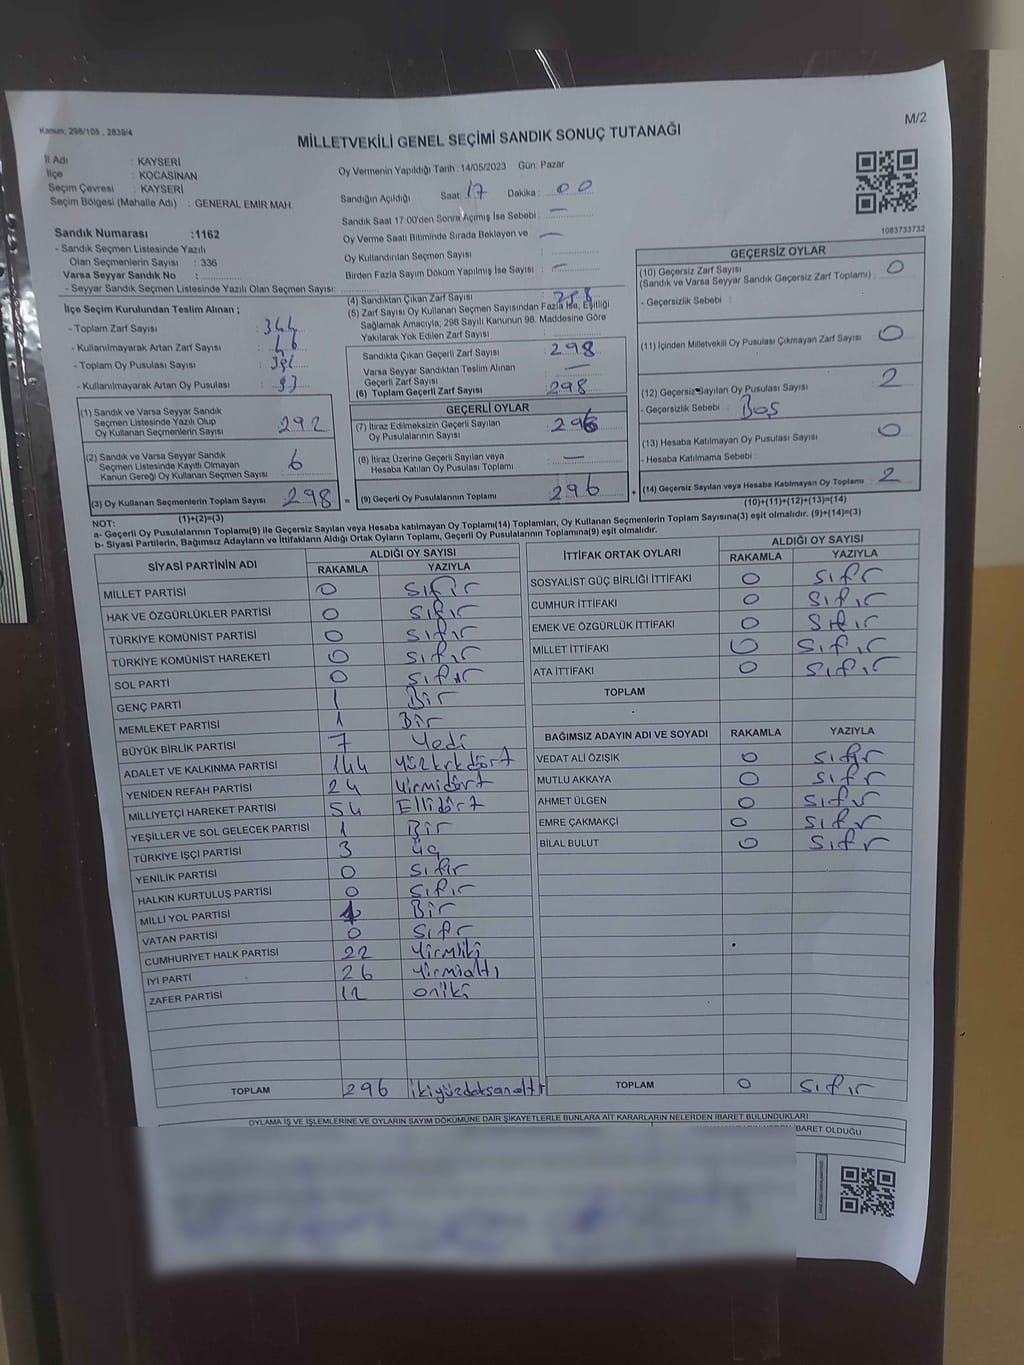 Kanun, 298/105 , 2839/4
M/2
MİLLETVEKİLİ GENEL SEÇİMİ SANDIK SONUÇ TUTANAĞI
İl Adı : KAYSERİ
İlçe : KOCASİNAN
Seçim Çevresi : KAYSERİ
Seçim Bölgesi (Mahalle Adı) : GENERAL EMİR MAH.
Sandık Numarası :1162
- Sandık Seçmen Listesinde Yazılı
Olan Seçmenlerin Sayısı : 336
Varsa Seyyar Sandık No :
- Seyyar Sandık Seçmen Listesinde Yazılı Olan Seçmen Sayısı:
Oy Vermenin Yapıldığı Tarih : 14/05/2023 Gün: Pazar
Sandığın Açıldığı Saat: 17 Dakika : 00
Sandık Saat 17:00'den Sonra Açımış İse Sebebi : —
Oy Verme Saati Bitiminde Sırada Bekleyen ve —
Oy Kullandırılan Seçmen Sayısı
Birden Fazla Sayım Döküm Yapılmış İse Sayısı : —
1083733732
İlçe Seçim Kurulundan Teslim Alınan ;
- Toplam Zarf Sayısı : 344
- Kullanılmayarak Artan Zarf Sayısı :
- Toplam Oy Pusulası Sayısı :
- Kullanılmayarak Artan Oy Pusulası :
(1) Sandık ve Varsa Seyyar Sandık
Seçmen Listesinde Yazılı Olup
Oy Kullanan Seçmenlerin Sayısı : 292
(2) Sandık ve Varsa Seyyar Sandık
Seçmen Listesinde Kayıtlı Olmayan
Kanun Gereği Oy Kullanan Seçmen Sayısı : 6
(3) Oy Kullanan Seçmenlerin Toplam Sayısı : 298 =
(1)+(2)=(3)
(4) Sandıktan Çıkan Zarf Sayısı : 298
(5) Zarf Sayısı Oy Kullanan Seçmen Sayısından Fazla İse, Eşitliği
Sağlamak Amacıyla, 298 Sayılı Kanunun 98. Maddesine Göre
Yakılarak Yok Edilen Zarf Sayısı
Sandıkta Çıkan Geçerli Zarf Sayısı : 298
Varsa Seyyar Sandıktan Teslim Alınan
Geçerli Zarf Sayısı : —
(6) Toplam Geçerli Zarf Sayısı : 298
GEÇERLİ OYLAR
(7) İtiraz Edilmeksizin Geçerli Sayılan
Oy Pusulalarının Sayısı : 296
(8) İtiraz Üzerine Geçerli Sayılan veya
Hesaba Katılan Oy Pusulası Toplamı : —
(9) Geçerli Oy Pusulalarının Toplamı : 296 +
GEÇERSİZ OYLAR
(10) Geçersiz Zarf Sayısı
(Sandık ve Varsa Seyyar Sandık Geçersiz Zarf Toplamı) : 0
- Geçersizlik Sebebi :
(11) İçinden Milletvekili Oy Pusulası Çıkmayan Zarf Sayısı : 0
(12) Geçersiz Sayılan Oy Pusulası Sayısı : 2
- Geçersizlik Sebebi : Boş
(13) Hesaba Katılmayan Oy Pusulası Sayısı : 0
- Hesaba Katılmama Sebebi :
(14) Geçersiz Sayılan veya Hesaba Katılmayan Oy Toplamı : 2
(10)+(11)+(12)+(13)=(14)
NOT:
a- Geçerli Oy Pusulalarının Toplamı(9) ile Geçersiz Sayılan veya Hesaba katılmayan Oy Toplamı(14) Toplamları, Oy Kullanan Seçmenlerin Toplam Sayısına(3) eşit olmalıdır. (9)+(14)=(3)
b- Siyasi Partilerin, Bağımsız Adayların ve İttifakların Aldığı Ortak Oyların Toplamı, Geçerli Oy Pusulalarının Toplamına(9) eşit olmalıdır.
SİYASİ PARTİNİN ADI ALDIĞI OY SAYISI
RAKAMLA YAZIYLA
MİLLET PARTİSİ 0 sıfır
HAK VE ÖZGÜRLÜKLER PARTİSİ 0 sıfır
TÜRKİYE KOMÜNİST PARTİSİ 0 sıfır
TÜRKİYE KOMÜNİST HAREKETİ 0 sıfır
SOL PARTİ 0 sıfır
GENÇ PARTİ 1 Bir
MEMLEKET PARTİSİ 1 Bir
BÜYÜK BİRLİK PARTİSİ 7 Yedi
ADALET VE KALKINMA PARTİSİ 144 Yüzkırkdört
YENİDEN REFAH PARTİSİ 24 Yirmidört
MİLLİYETÇİ HAREKET PARTİSİ 54 Ellidört
YEŞİLLER VE SOL GELECEK PARTİSİ 1 Bir
TÜRKİYE İŞÇİ PARTİSİ 3 üç
YENİLİK PARTİSİ 0 sıfır
HALKIN KURTULUŞ PARTİSİ 0 sıfır
MİLLİ YOL PARTİSİ 1 Bir
VATAN PARTİSİ 0 sıfır
CUMHURİYET HALK PARTİSİ 22 Yirmiiki
İYİ PARTİ 26 Yirmialtı
ZAFER PARTİSİ 12 oniki
TOPLAM 296 ikiyüzdoksanaltı
İTTİFAK ORTAK OYLARI ALDIĞI OY SAYISI
RAKAMLA YAZIYLA
SOSYALİST GÜÇ BİRLİĞİ İTTİFAKI 0 sıfır
CUMHUR İTTİFAKI 0 sıfır
EMEK VE ÖZGÜRLÜK İTTİFAKI 0 sıfır
MİLLET İTTİFAKI 0 sıfır
ATA İTTİFAKI 0 sıfır
TOPLAM
BAĞIMSIZ ADAYIN ADI VE SOYADI RAKAMLA YAZIYLA
VEDAT ALİ ÖZIŞIK 0 sıfır
MUTLU AKKAYA 0 sıfır
AHMET ÜLGEN 0 sıfır
EMRE ÇAKMAKÇİ 0 sıfır
BİLAL BULUT 0 sıfır
TOPLAM 0 sıfır
OYLAMA İŞ VE İŞLEMLERİNE VE OYLARIN SAYIM DÖKÜMÜNE DAİR ŞİKAYETLERLE BUNLARA AİT KARARLARIN NELERDEN İBARET BULUNDUKLARI
İBARET OLDUĞU